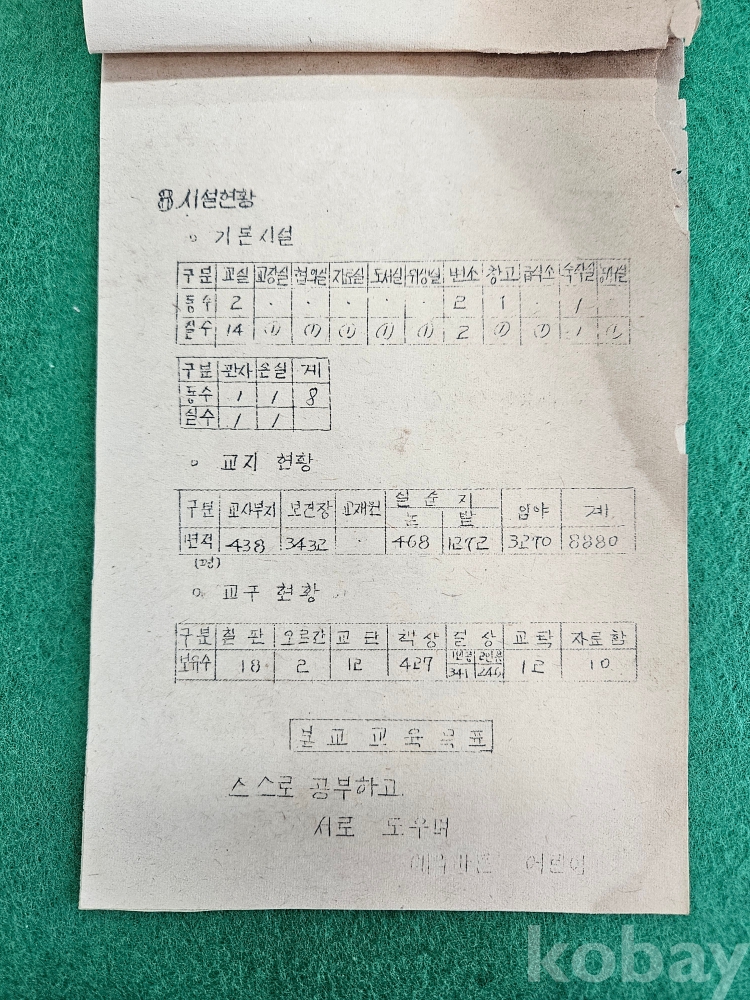 8 시설현황
○ 기본시설
구분 교실 교장실 협의실 자료실 도서실 위생실 변소 창고 급식소 숙직실
동수 2 · · · · · 2 1 · 1
실수 14 (1) (1) (1) (1) (1) 2 (1) (1) 1 (1)
구분 관사 온실 계
동수 1 1 8
실수 1 1
○ 교지 현황
구분 교사부지 보건장 교재원 실습지 임야 계
논 밭
면적 438 3432 · 468 1272 3270 8880
(평)
○ 교구 현황
구분 칠판 오르간 교단 책상 걸상 교탁 자료함
1인용 2인용
보유수 18 2 12 427 341 246 12 10
본교 교육목표
스스로 공부하고
서로 도우며
어린이
kobay